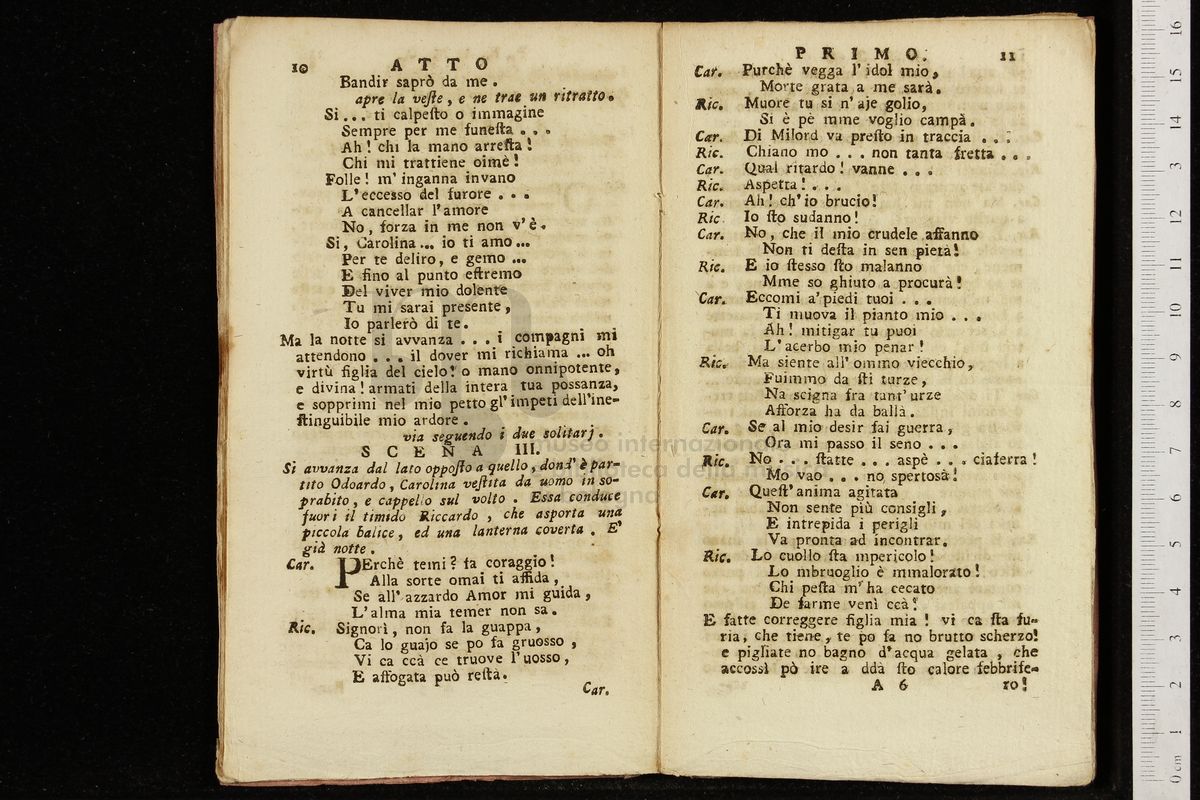 10 ATTO
Bandir saprò da me.
apre la veſte, e ne trae un ritratto.
Si... ti calpeſto o immagine
Sempre per me funeſta...
Ah! chi la mano arreſta!
Chi mi trattiene oimè!
Folle! m'inganna invano
L'eccesso del furore...
A cancellar l'amore
No, forza in me non v'è.
Si, Carolina... io ti amo...
Per te deliro, e gemo...
E fino al punto eſtremo
Del viver mio dolente
Tu mi sarai presente,
Io parlerò di te.
Ma la notte si avvanza... i compagni mi
attendono... il dover mi richiama... oh
virtù figlia del cielo! o mano onnipotente,
e divina! armati della intera tua possanza,
e sopprimi nel mio petto gl'impeti dell'ine-
ſtinguibile mio ardore.
via seguendo i due solitarj.
SCENA III.
Si avvanza dal lato oppoſto a quello, dond'è par-
tito Odoardo, Carolina veſtita da uomo in so-
prabito, e cappello sul volto. Essa conduce
fuori il timido Riccardo, che asporta una
piccola balice, ed una lanterna coverta. E'
già notte.
Car. PErchè temi? fa coraggio!
Alla sorte omai ti affida,
Se all'azzardo Amor mi guida,
L'alma mia temer non sa.
Ric. Signorì, non fa la guappa,
Ca lo guajo se po fa gruosso,
Vi ca ccà ce truove l'uosso,
E affogata può reſtà.
Car.
PRIMO. 11
Car. Purchè vegga l'idol mio,
Morte grata a me sarà.
Ric. Muore tu si n'aje golio,
Si è pè mme voglio campà.
Car. Di Milord va preſto in traccia...
Ric. Chiano mo... non tanta fretta...
Car. Qual ritardo! vanne...
Ric. Aspetta!...
Car. Ah! ch'io brucio!
Ric. Io ſto sudanno!
Car. No, che il mio crudele affanno
Non ti deſta in sen pietà!
Ric. E io ſtesso ſto malanno
Mme so ghiuto a procurà!
Car. Eccomi a'piedi tuoi...
Ti muova il pianto mio...
Ah! mitigar tu puoi
L'acerbo mio penar!
Ric. Ma siente all'ommo viecchio,
Fuimmo da ſti turze,
Na scigna fra tant'urze
Afforza ha da ballà.
Car. Se al mio desir fai guerra,
Ora mi passo il seno...
Ric. No... ſtatte... aspè... ciaferra!
Mo vao... no spertosà!
Car. Queſt'anima agitata
Non sente più consigli,
E intrepida i perigli
Va pronta ad incontrar.
Ric. Lo cuollo ſta mpericolo!
Lo mbruoglio è mmalorato!
Chi peſta m'ha cecato
De farme venì ccà!
E fatte correggere figlia mia! vi ca ſta fu-
ria, che tiene, te po fa no brutto scherzo!
e pigliate no bagno d'acqua gelata, che
accossì pò ire a ddà ſto calore febbrife-
A 6 ro!
museo internazionale
e biblioteca della musica
0 cm 1 2 3 4 5 6 7 8 9 10 11 12 13 14 15 16